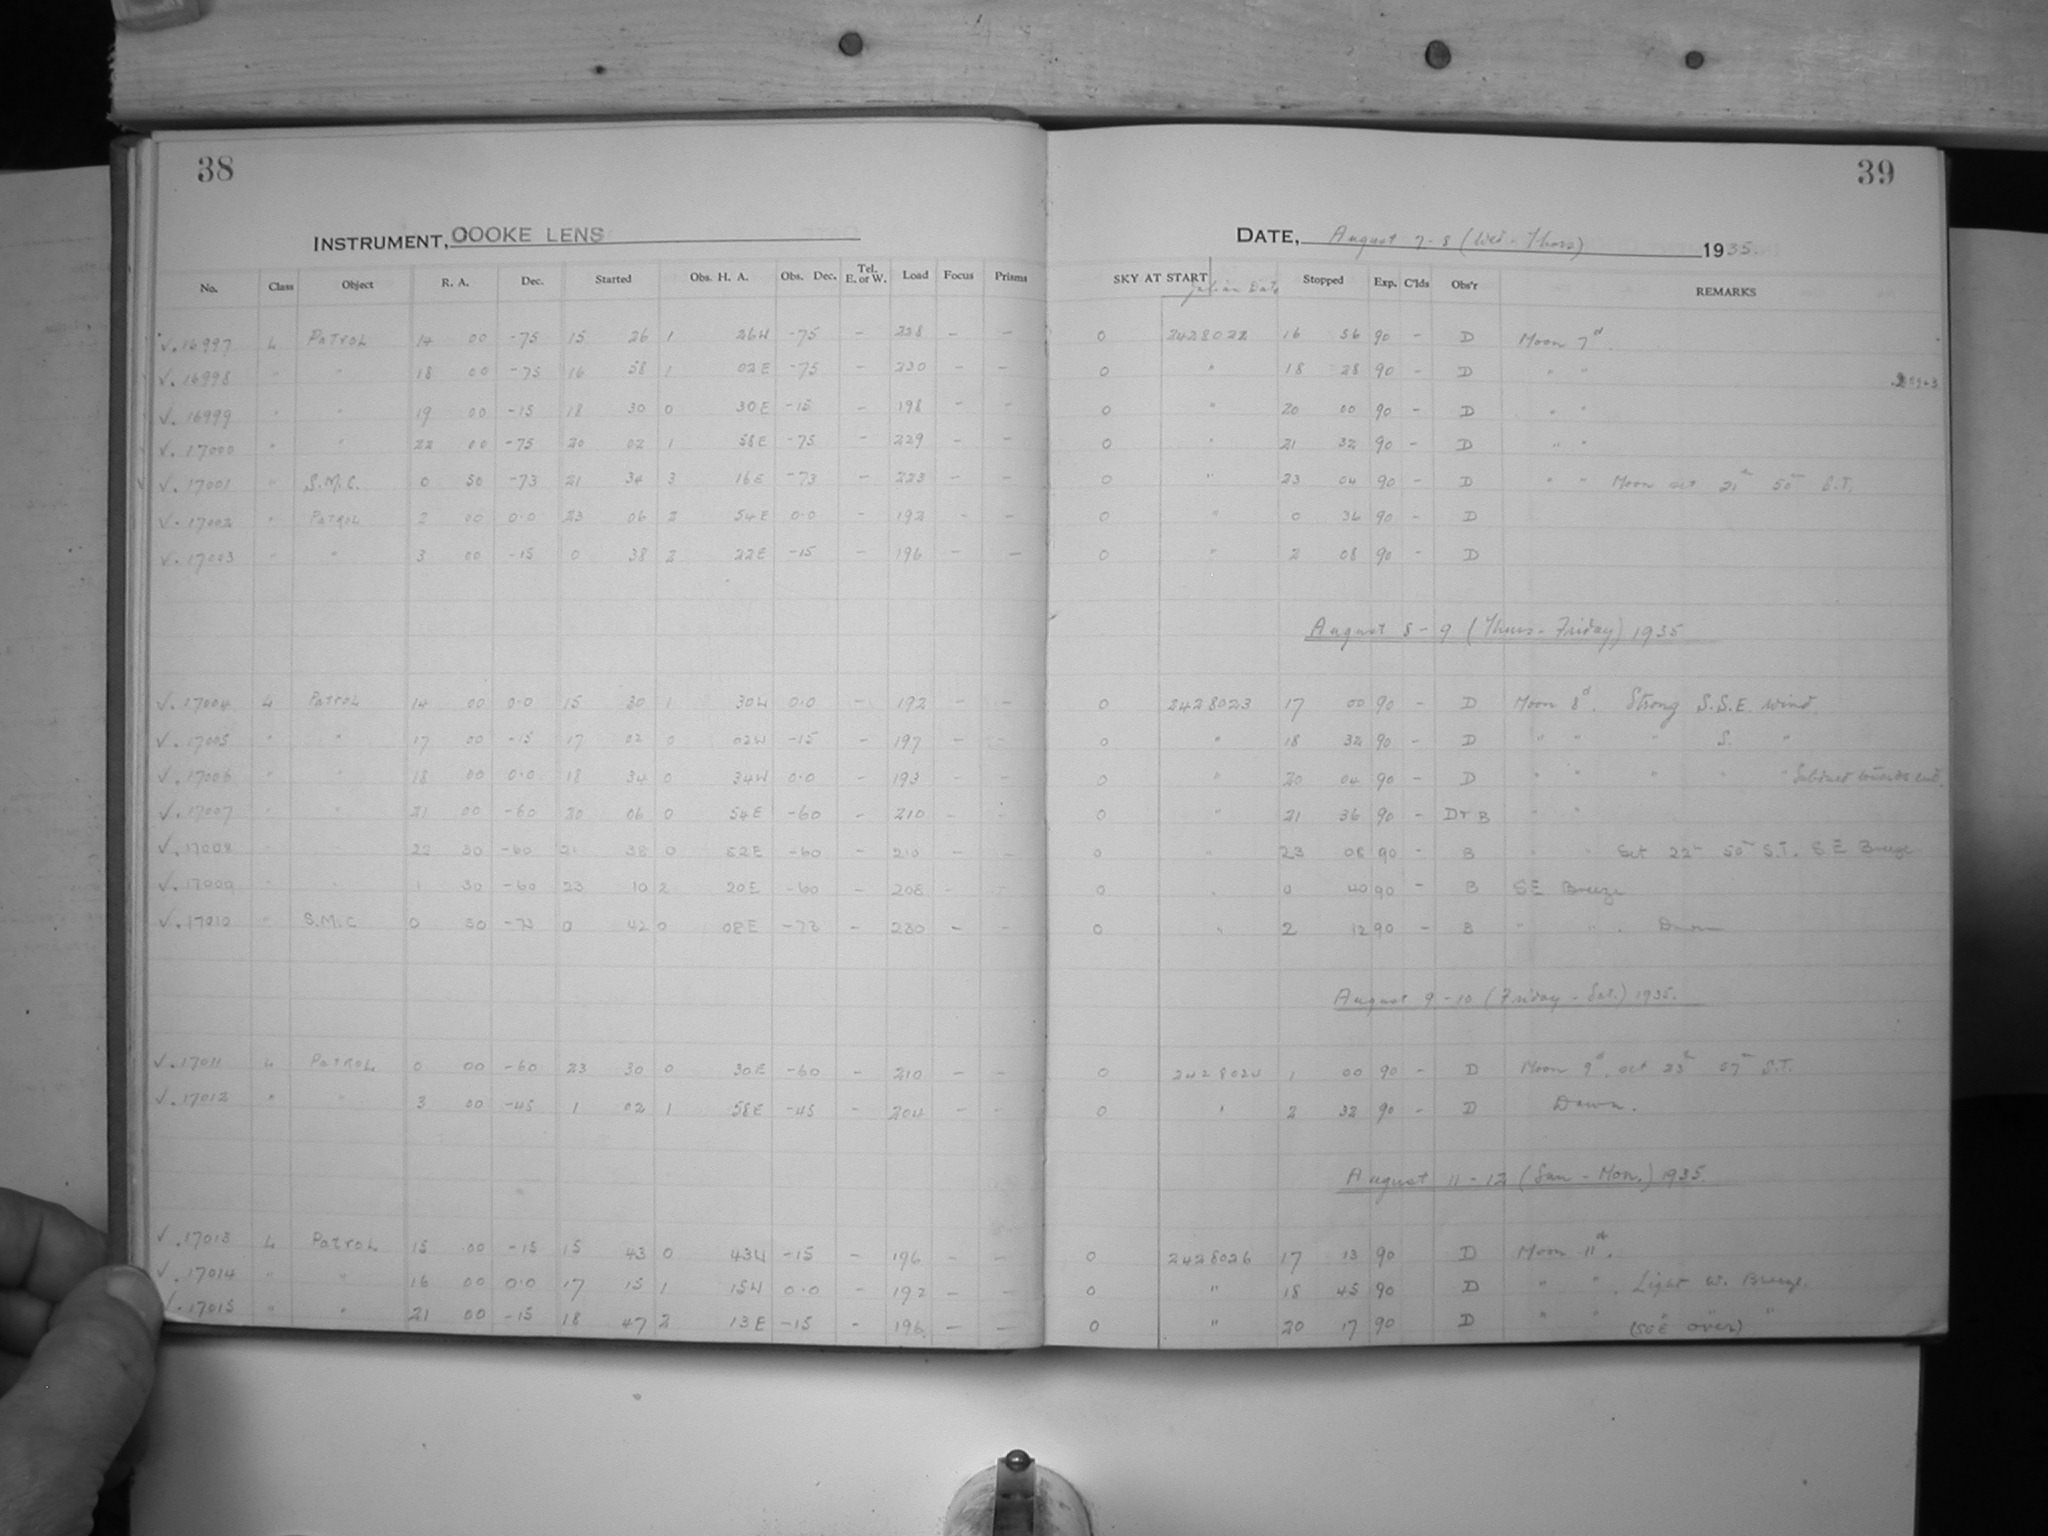 38
INSTRUMENT, COOKE LENS
No. Class Object R. A. Dec. Started Obs. H. A. Obs. Dec. Tel. E. or W. Load Focus Prisms
√.16997 L Patrol 14 00 -75 15 26 1 26W -75 - 228 - -
√.16998 " " 18 00 -75 16 58 1 02E -75 - 230 - -
√.16999 " " 19 00 -15 18 30 0 30E -15 - 198 - -
√.17000 " " 22 00 -75 20 02 1 58E -75 - 229 - -
√.17001 " S.M.C. 0 50 -73 21 34 3 16E -73 - 223 - -
√.17002 " Patrol 2 00 0.0 23 06 2 54E 0.0 - 192 - -
√.17003 " " 3 00 -15 0 38 2 22E -15 - 196 - -
√.17004 L Patrol 14 00 0.0 15 30 1 30W 0.0 - 192 - -
√.17005 " " 17 00 -15 17 02 0 02W -15 - 197 - -
√.17006 " " 18 00 0.0 18 34 0 34W 0.0 - 193 - -
√.17007 " " 21 00 -60 20 06 0 54E -60 - 210 - -
√.17008 " " 22 30 -60 21 38 0 52E -60 - 210 - -
√.17009 " " 1 30 -60 23 10 2 20E -60 - 208 - -
√.17010 " S.M.C 0 50 -73 0 42 0 08E -73 - 230 - -
√.17011 L Patrol 0 00 -60 23 30 0 30E -60 - 210 - -
√.17012 " " 3 00 -45 1 02 1 58E -45 - 204 - -
√.17013 L Patrol 15 00 -15 15 43 0 43W -15 - 196 - -
√.17014 " " 16 00 0.0 17 15 1 15W 0.0 - 192 - -
√.17015 " " 21 00 -15 18 47 2 13E -15 - 196 - -
39
DATE, August 7-8 (Wed - Thurs) 1935.
SKY AT START Julian Date Stopped Exp. C'lds Obs'r REMARKS
0 2428022 16 56 90 - D Moon 7d.
0 " 18 28 90 - D " "
0 " 20 00 90 - D " "
0 " 21 32 90 - D " "
0 " 23 04 90 - D " " Moon set 21h 50m S.T.
0 " 0 36 90 - D
0 " 2 08 90 - D
August 8-9 (Thurs - Friday) 1935
0 2428023 17 00 90 - D Moon 8d. Strong S.S.E. wind
0 " 18 32 90 - D " " " S. "
0 " 20 04 90 - D " " " " " towards end.
0 " 21 36 90 - D & B " "
0 " 23 08 90 - B " " Set 22h 50m S.T. SE Breeze
0 " 0 40 90 - B SE Breeze
0 " 2 12 90 - B " " . Dawn
August 9-10 (Friday - Sat.) 1935.
0 2428024 1 00 90 - D Moon 9d. set 23h 57m S.T.
0 " 2 32 90 - D Dawn.
August 11-12 (Sun - Mon.) 1935
0 2428026 17 13 90 D Moon 11d.
0 " 18 45 90 D " " . Light W. Breeze.
0 " 20 17 90 D " " " " "
over)